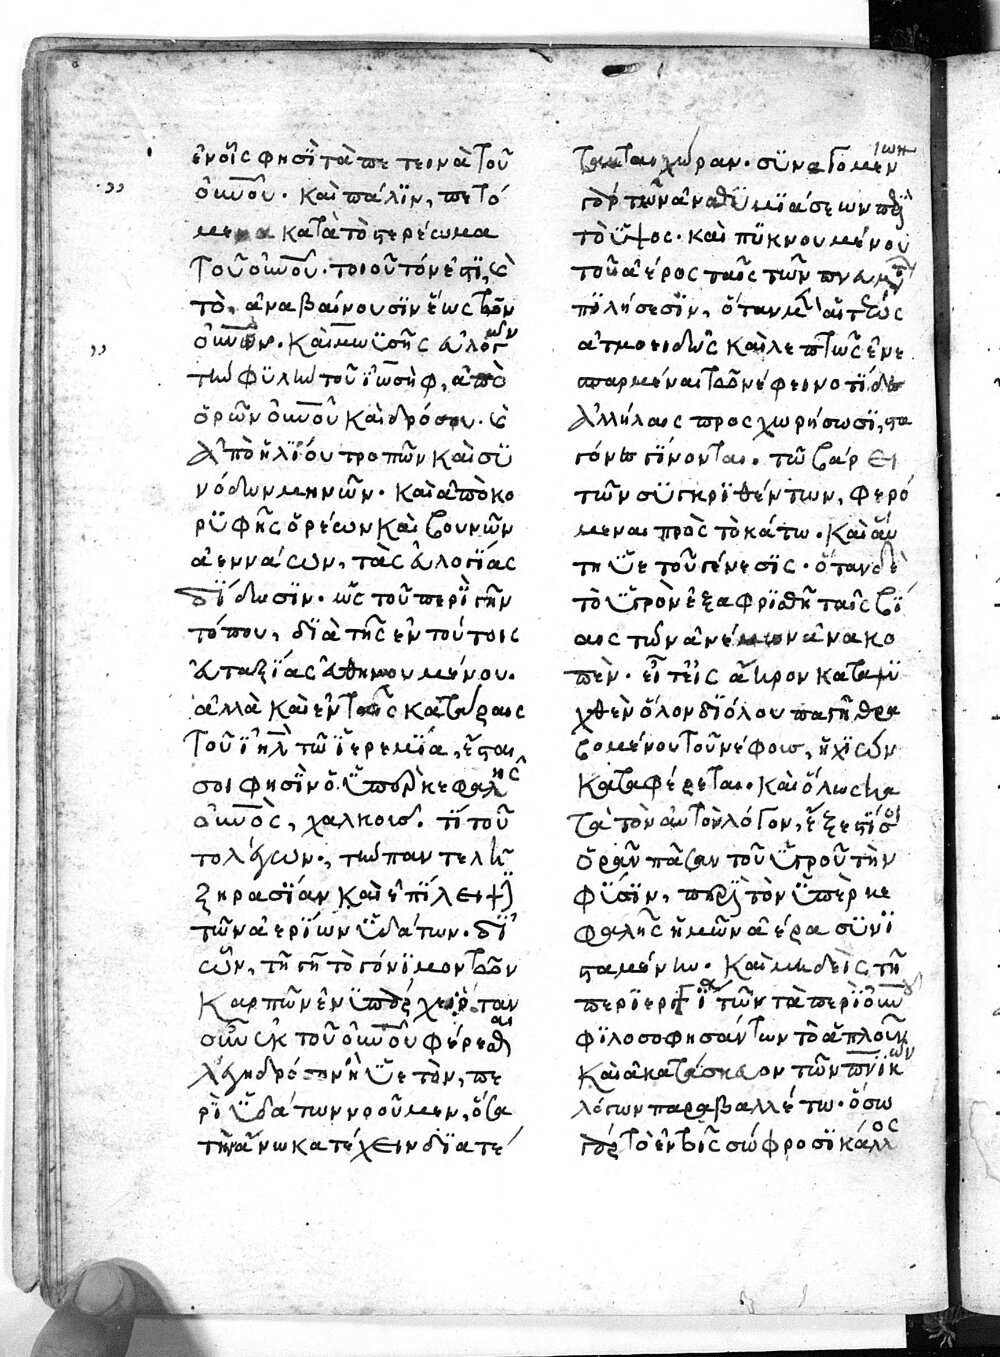 ἐν οἷς φησὶ τὰ πετεινὰ τοῦ
οὐνοῦ. καὶ πάλιν, πετό
μενα κατὰ τὸ στερέωμα
τοῦ οὐνοῦ. τοιοῦτόν ἐστι, καὶ
τὸ, ἀναβαίνουσιν ἕως τῶν
οὐνῶν. καὶ μωϋσῆς εὐλογῶν
τὴν φυλὴν τοῦ ἰωσὴφ, ἀπὸ
ὁρῶν οὐνοῦ καὶ δρόσου. καὶ
ἀπὸ ἡλίου τροπῶν καὶ συ
νόδων μηνῶν. καὶ ἀπὸ κο
ρυφῆς ὀρέων καὶ βουνῶν
ἀεννάων, τὰς εὐλογίας
δίδωσιν. ὡς τοῦ περὶ γῆν
τόπου, διὰ τῆς ἐν τούτοις
εὐταξίας εὐθηνουμένου.
ἀλλὰ καὶ ἐν ταῖς κατάραις
τοῦ ἰηλ τῶ ἱερεμία, ἔσται
σοι φησὶν ὁ ὑπὲρ κεφαλῆς
οὐνὸς, χαλκοῦς. τί τοῦ
το λέγων, τὴν παντελῆ
ξηρασίαν καὶ ἐπίλειψιν
τῶν ἀερίων ὑδάτων. δι
ὧν, τῇ γῇ τὸ γόνιμον τῶν
καρπῶν ἐνυπάρχει. ὅταν
οὖν ἐκ τοῦ οὐνοῦ φέρεσθαι
λέγη δρόσον ἢ ὑετὸν, πε
ρὶ ὑδάτων νοοῦμεν, ὅσα
τὴν ἄνω κατέχειν διατέ
τακται χώραν. συναγομένων
γὰρ τῶν ἀναθυμιάσεων περὶ
τὸ ὕψος. καὶ πυκνουμένου
τοῦ ἀέρος ταῖς τῶν πνευμάτων
πιλήσεσιν, ὅταν μὲν αἱ τέως
ἀτμοειδῶς καὶ λεπτῶς ἐνε
σπαρμέναι τῶ νέφει νοτίδες
ἀλλήλαις προσχωρήσωσι, στα
γόνες γίνονται. τῶ βάρει
τῶν συγκριθέντων, φερό
μεναι πρὸς τὸ κάτω. καὶ αὕ
τη ὑετοῦ γένεσις. ὅταν δὲ
τὸ ὑγρὸν ἐξαφρισθῆ ταῖς βί
αις τῶν ἀνέμων ἀνακο
πὲν. εἶτ εἰς ἄκρον καταψυ
χθὲν ὅλον διόλου παγῆ θραυ
ομένου τοῦ νέφους, ἡ χιὼν
καταφέρεται. καὶ ὅλως κα
τὰ τὸν αὐτὸν λόγον, ἔξεστί σοι
ὁρᾶν πᾶσαν τοῦ ὑγροῦ τὴν
φύσιν, περὶ τὸν ὑπὲρ κε
φαλῆς ἡμῶν ἀέρα συνι
σταμένην. καὶ μηδεὶς τῆ
περιεργεία τῶν τὰ περὶ οὐνοῦ
φιλοσοφησάντων τὸ ἁπλοῦν
καὶ ἀκατάσκευον τῶν πνικῶν
λόγων παραβαλλέτω. ὅσω
γὰρ τὸ ἐν ταῖς σώφροσι κάλλος